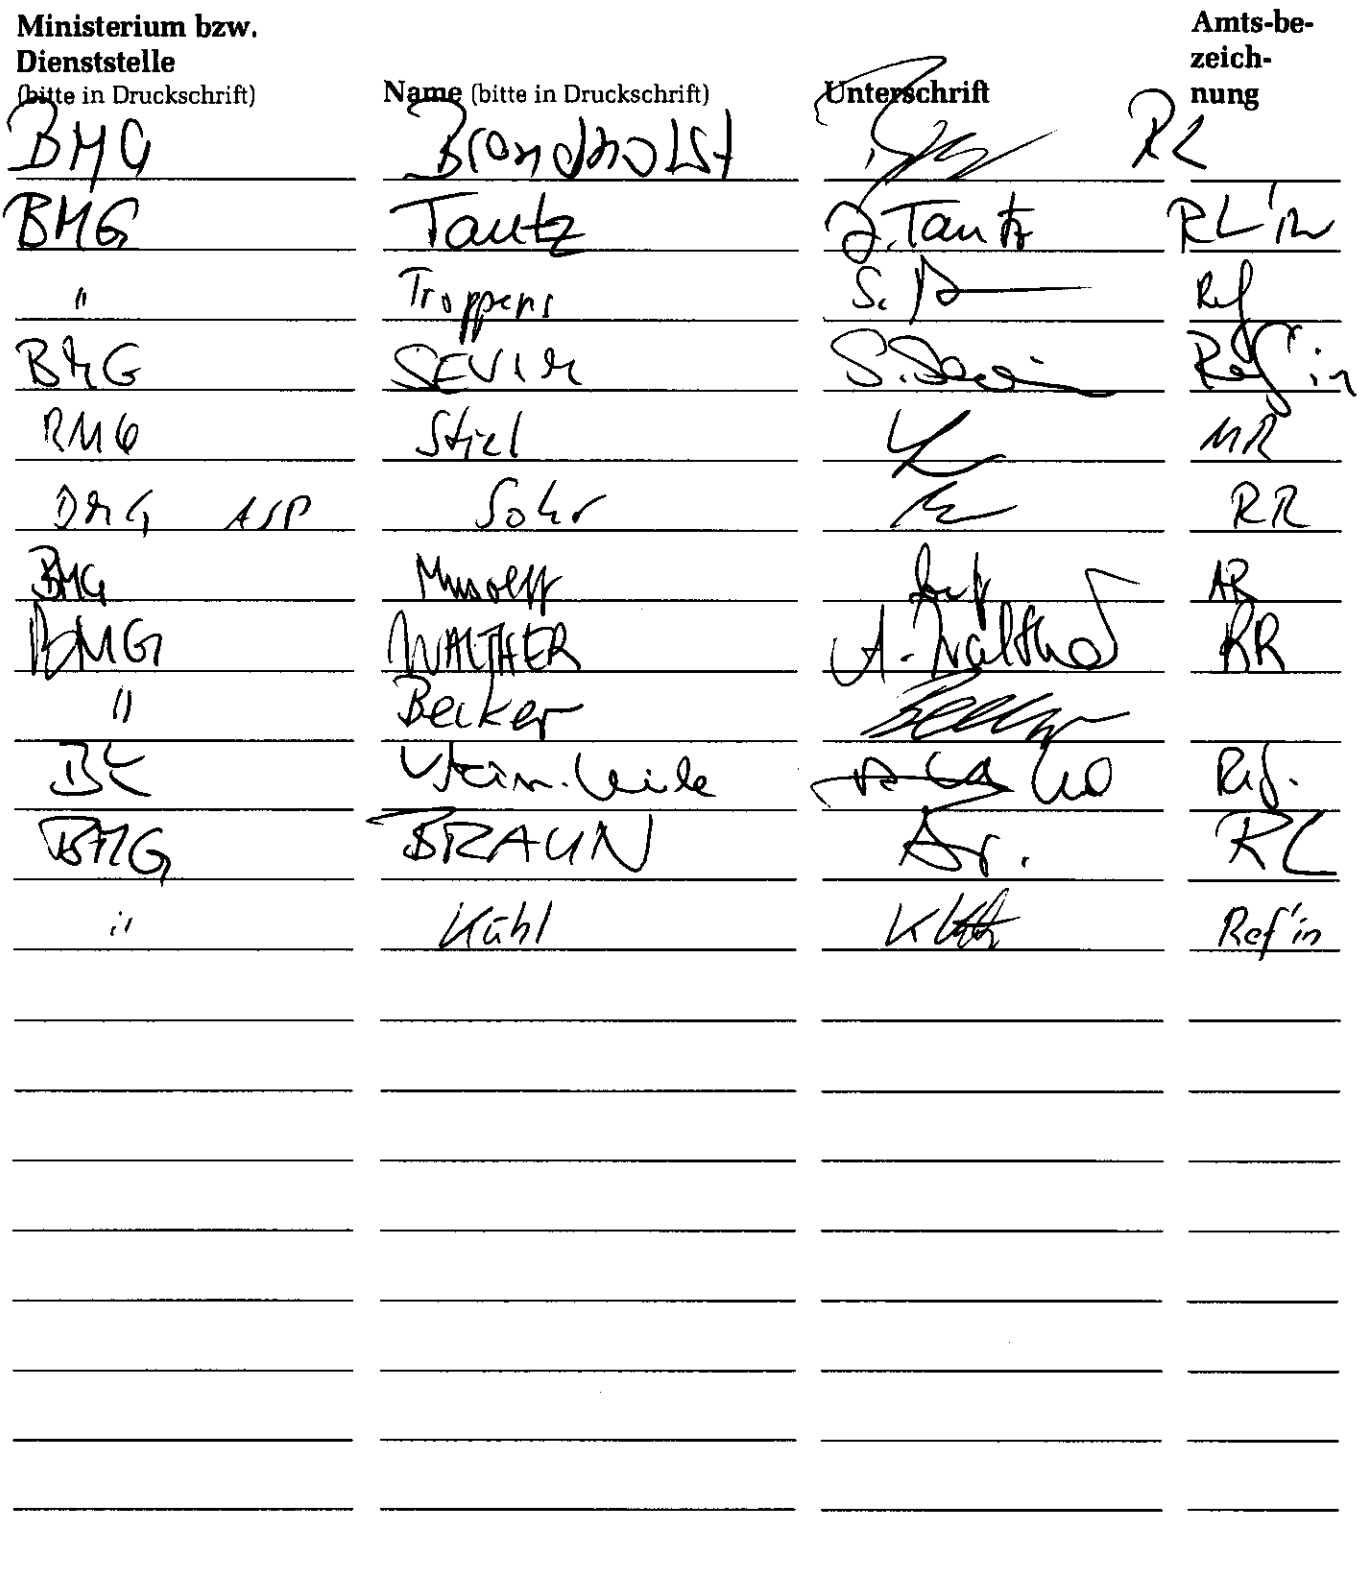 Ministerium bzw.
Dienststelle
(bitte in Druckschrift) Name (bitte in Druckschrift) Unterschrift Amts-be-
zeich-
nung
BMG Brandholst RL
BMG Tautz J. Tautz RL'in
" Troppens S. Ref
BMG SEVIM S. Sevim Ref'in
BMG Stiel MR
BMG ASP Sohr RR
BMG Musolff AR
BMG WALTHER A. Walther RR
" Becker Becker
BK Ref.
BMG BRAUN Br. RL
" Kühl Ref'in